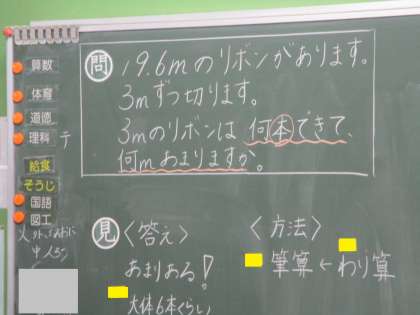 問 19.6mのリボンがあります。
3mずつ切ります。
3mのリボンは何本できて、
何mあまりますか。
算数
体育
道徳
理科 テ
給食
そうじ
国語
図工
見 〈答え〉
あまりある!
大体6本くらい
〈方法〉
筆算←わり算